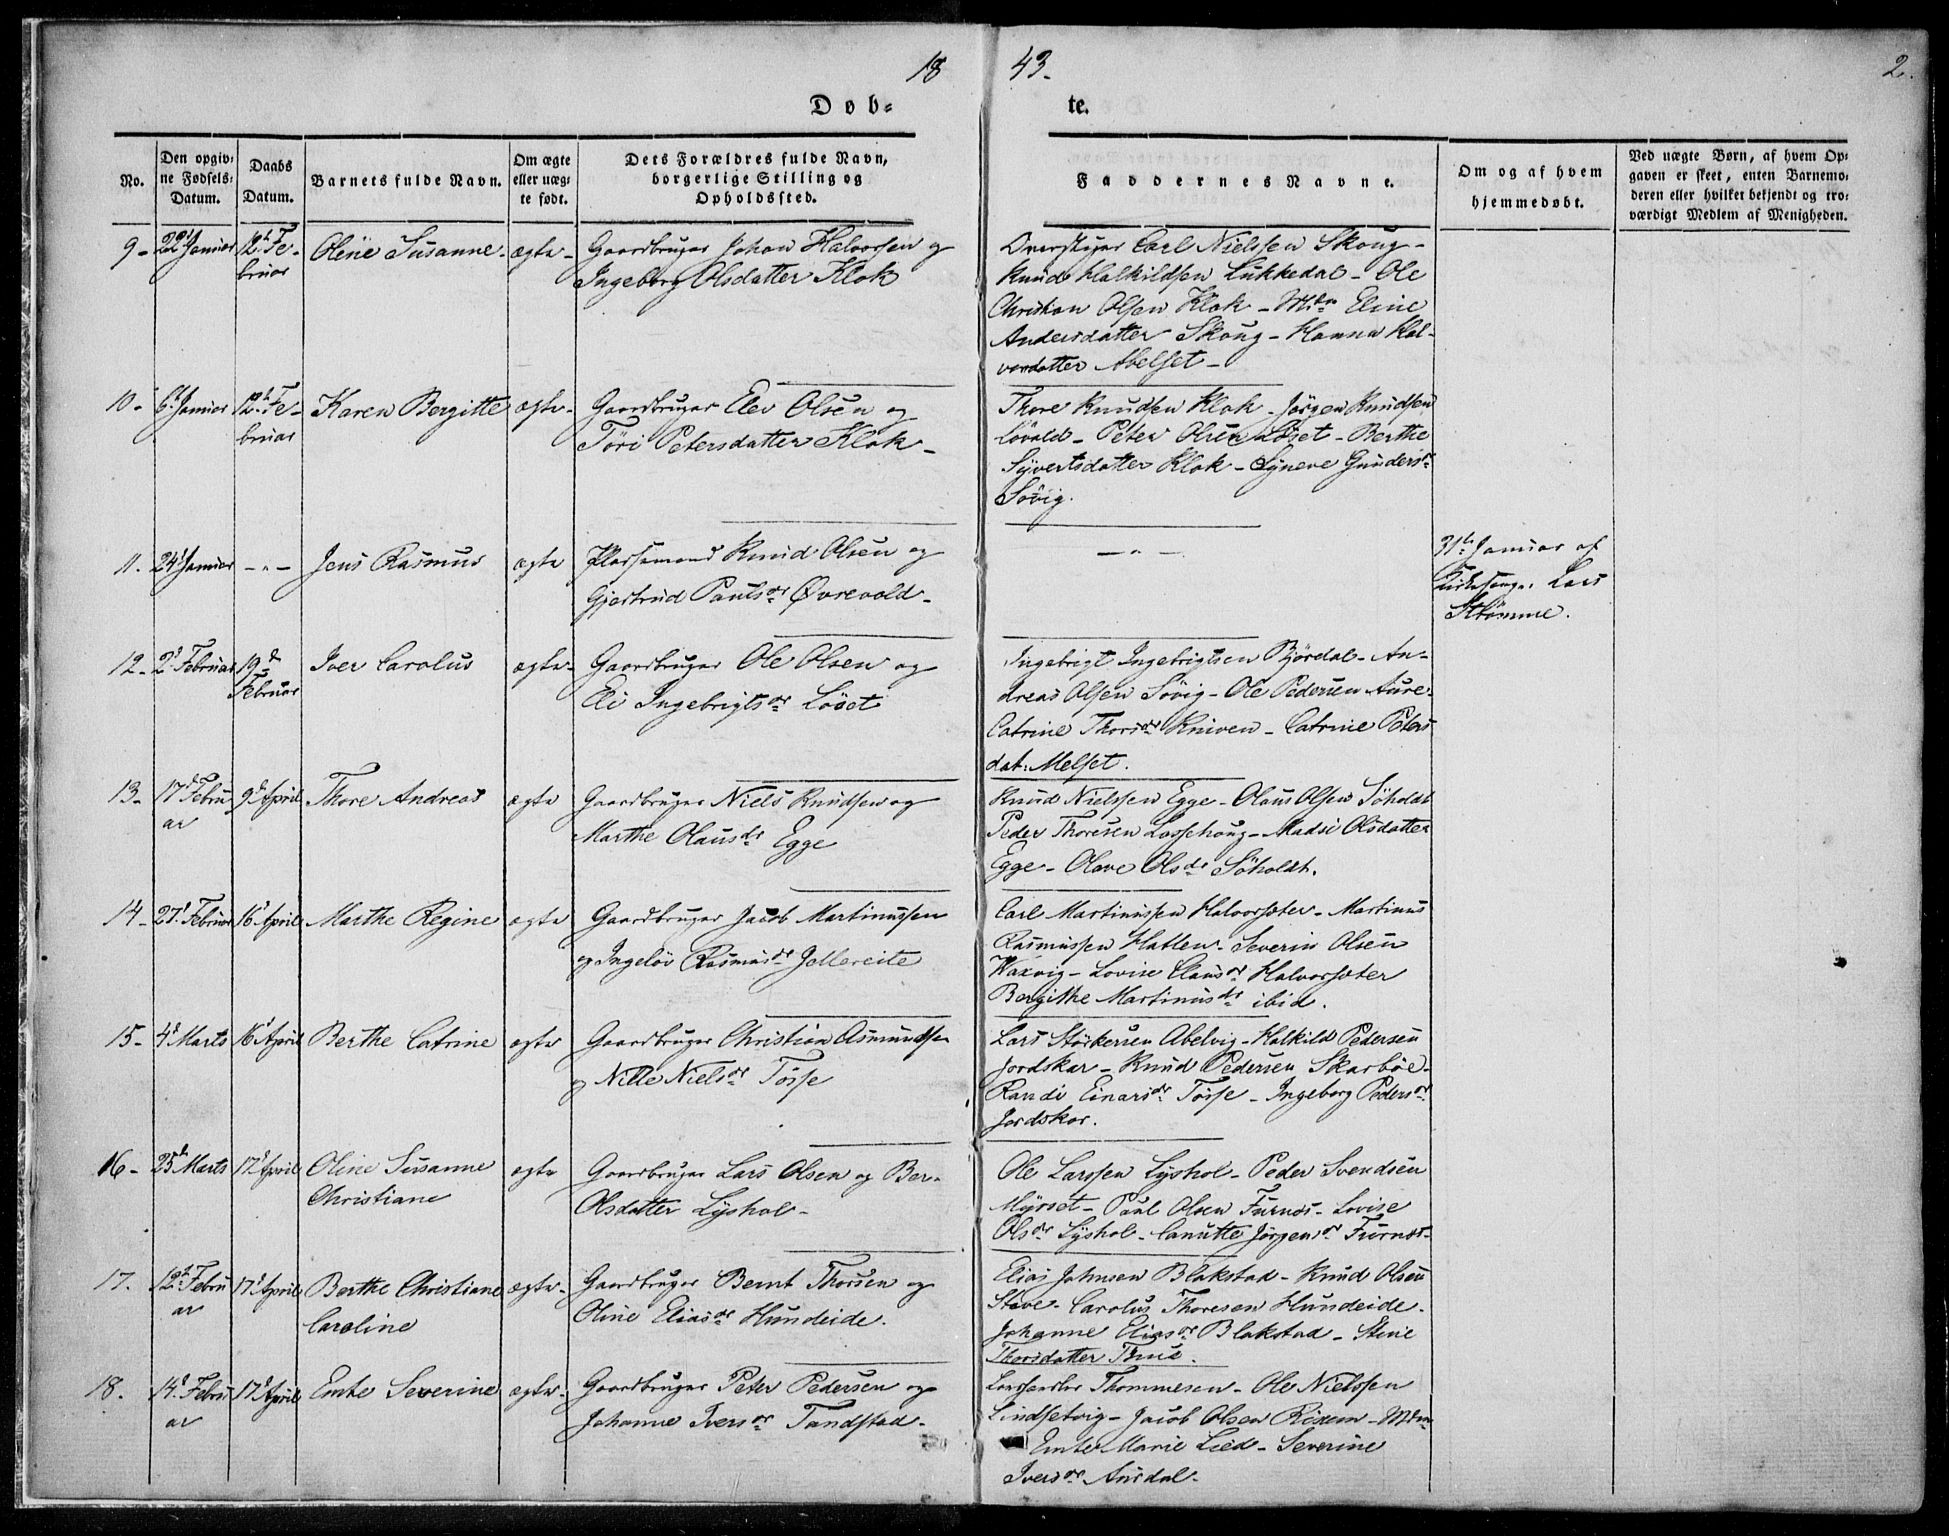 18 43.
2.
Døb- te.
No.
Den opgiv-
ne Fødsels-
Datum.
Daabs
Datum.
Barnets fulde Navn.
Om ægte
eller uæg-
te født.
Dets Forældres fulde Navn,
borgerlige Stilling og
Opholdssted.
Faddernes Navne.
Om og af hvem
hjemmedøbt.
Ved uægte Børn, af hvem Op-
gaven er skeet, enten Barnemo-
deren eller hvilket bekjendt og tro-
værdigt Medlem af Menigheden.
9- 22 Januar 12 Fe-
bruar
Oline Susanne- ægte-
Gaardbruger Johan Halvorsen og
Ingeborg Olsdatter Klok
Carl Nielssen Skoug-
Knud Halkildsen Lukkedal- Ole
Christian Olsen Klok- Mdm Eline
Andersdatter Skoug- Hanna Hal-
vorsdatter Abelset-
10- 6 Januar 12 Fe-
bruar
Karen Bergitte ægte-
Gaardbruger Elev Olsen og
Töri Petersdatter Klok-
Thore Knudsen Klok- Jörgen Knudsen
Lövold- Peter Olsen Löset- Berthe
Syvertsdatter Klok- Syneve Gundersdr
Sövig.
11. 24 Januar -"-
Jens Rasmus ægte
Pladsemand Knud Olsen og
Gjertrud Paulsdr Øvrevold-
-"-
31te Januar af
Kirkesang. Lars
Strömme.
12- 2 Februar 19d
Februar
Iver Carolus ægte-
Gaardbruger Ole Olsen og
Eli Ingebrigtsdr Löset
Ingebrigt Ingebrigtsen Björdal- An-
dreas Olsen Sövig- Ole Pedersen Aure-
Catrine Thorsdr Kniven- Catrine Peters
dat: Melset.
13- 17 Febru
ar
9 April
Thore Andreas ægte
Gaardbruger Niels Knudsen og
Marthe Olausdr Egge
Knud Nielssen Egge- Olaus Olsen Söholdt
Peder Thoresen Lossehoug- Madsi Olsdatter
Egge- Olave Olsdr Söholdt.
14- 27 Februar 16 April
Marthe Regine ægte
Gaardbruger Jacob Martinussen
og Ingelöv Rasmusdr Jellereite
Carl Martinussen Halvorsæter- Martinus
Rasmussen Hatlen- Severin Olsen
Waxvig- Lovise Clausdr Halvorsæter
Bergithe Martinusdr ibid.
15- 4 Marts 16 April
Berthe Catrine ægte
Gaardbruger Christian Asmundsen
og Nille Nielsdr Tösse
Lars Störkersen Abelvig- Halkild Pedersen
Jordskar- Knud Pedersen Skarböe-
Randi Einarsdr Tösse- Ingeborg Pedersdr
Jordskar.
16- 25 Marts 17 April
Oline Susanne
Christiane
ægte
Gaardbruger Lars Olsen og Ber-
Olsdatter Lyshol-
Ole Larssen Lyshol- Peder Svendsen
Myrset- Paul Olsen Furnæs- Lovise
Olsdr Lyshol- Canutte Jörgensdr Furnæs-
17. 12 Febru
ar
17 April
Berthe Christiane
Caroline
ægte-
Gaardbruger Bernt Thorsen og
Oline Eliasdr Hundeide.
Elias Johnsen Blakstad- Knud Olsen
Stave- Carolus Thoresen Hundeide-
Johanne Eliasdr Blakstad- Stine
Thorsdatter Thue.
18. 14 Febru
ar
17 April
Emte Severine ægte-
Gaardbruger Peter Pedersen og
Johanne Iversdr Tandstad-
Thommesen- Ole Nielssen
Lindsetvig- Jacob Olsen Risem- Mdm
Emte Marie Lied- Severine
Iversdr Aurdal-